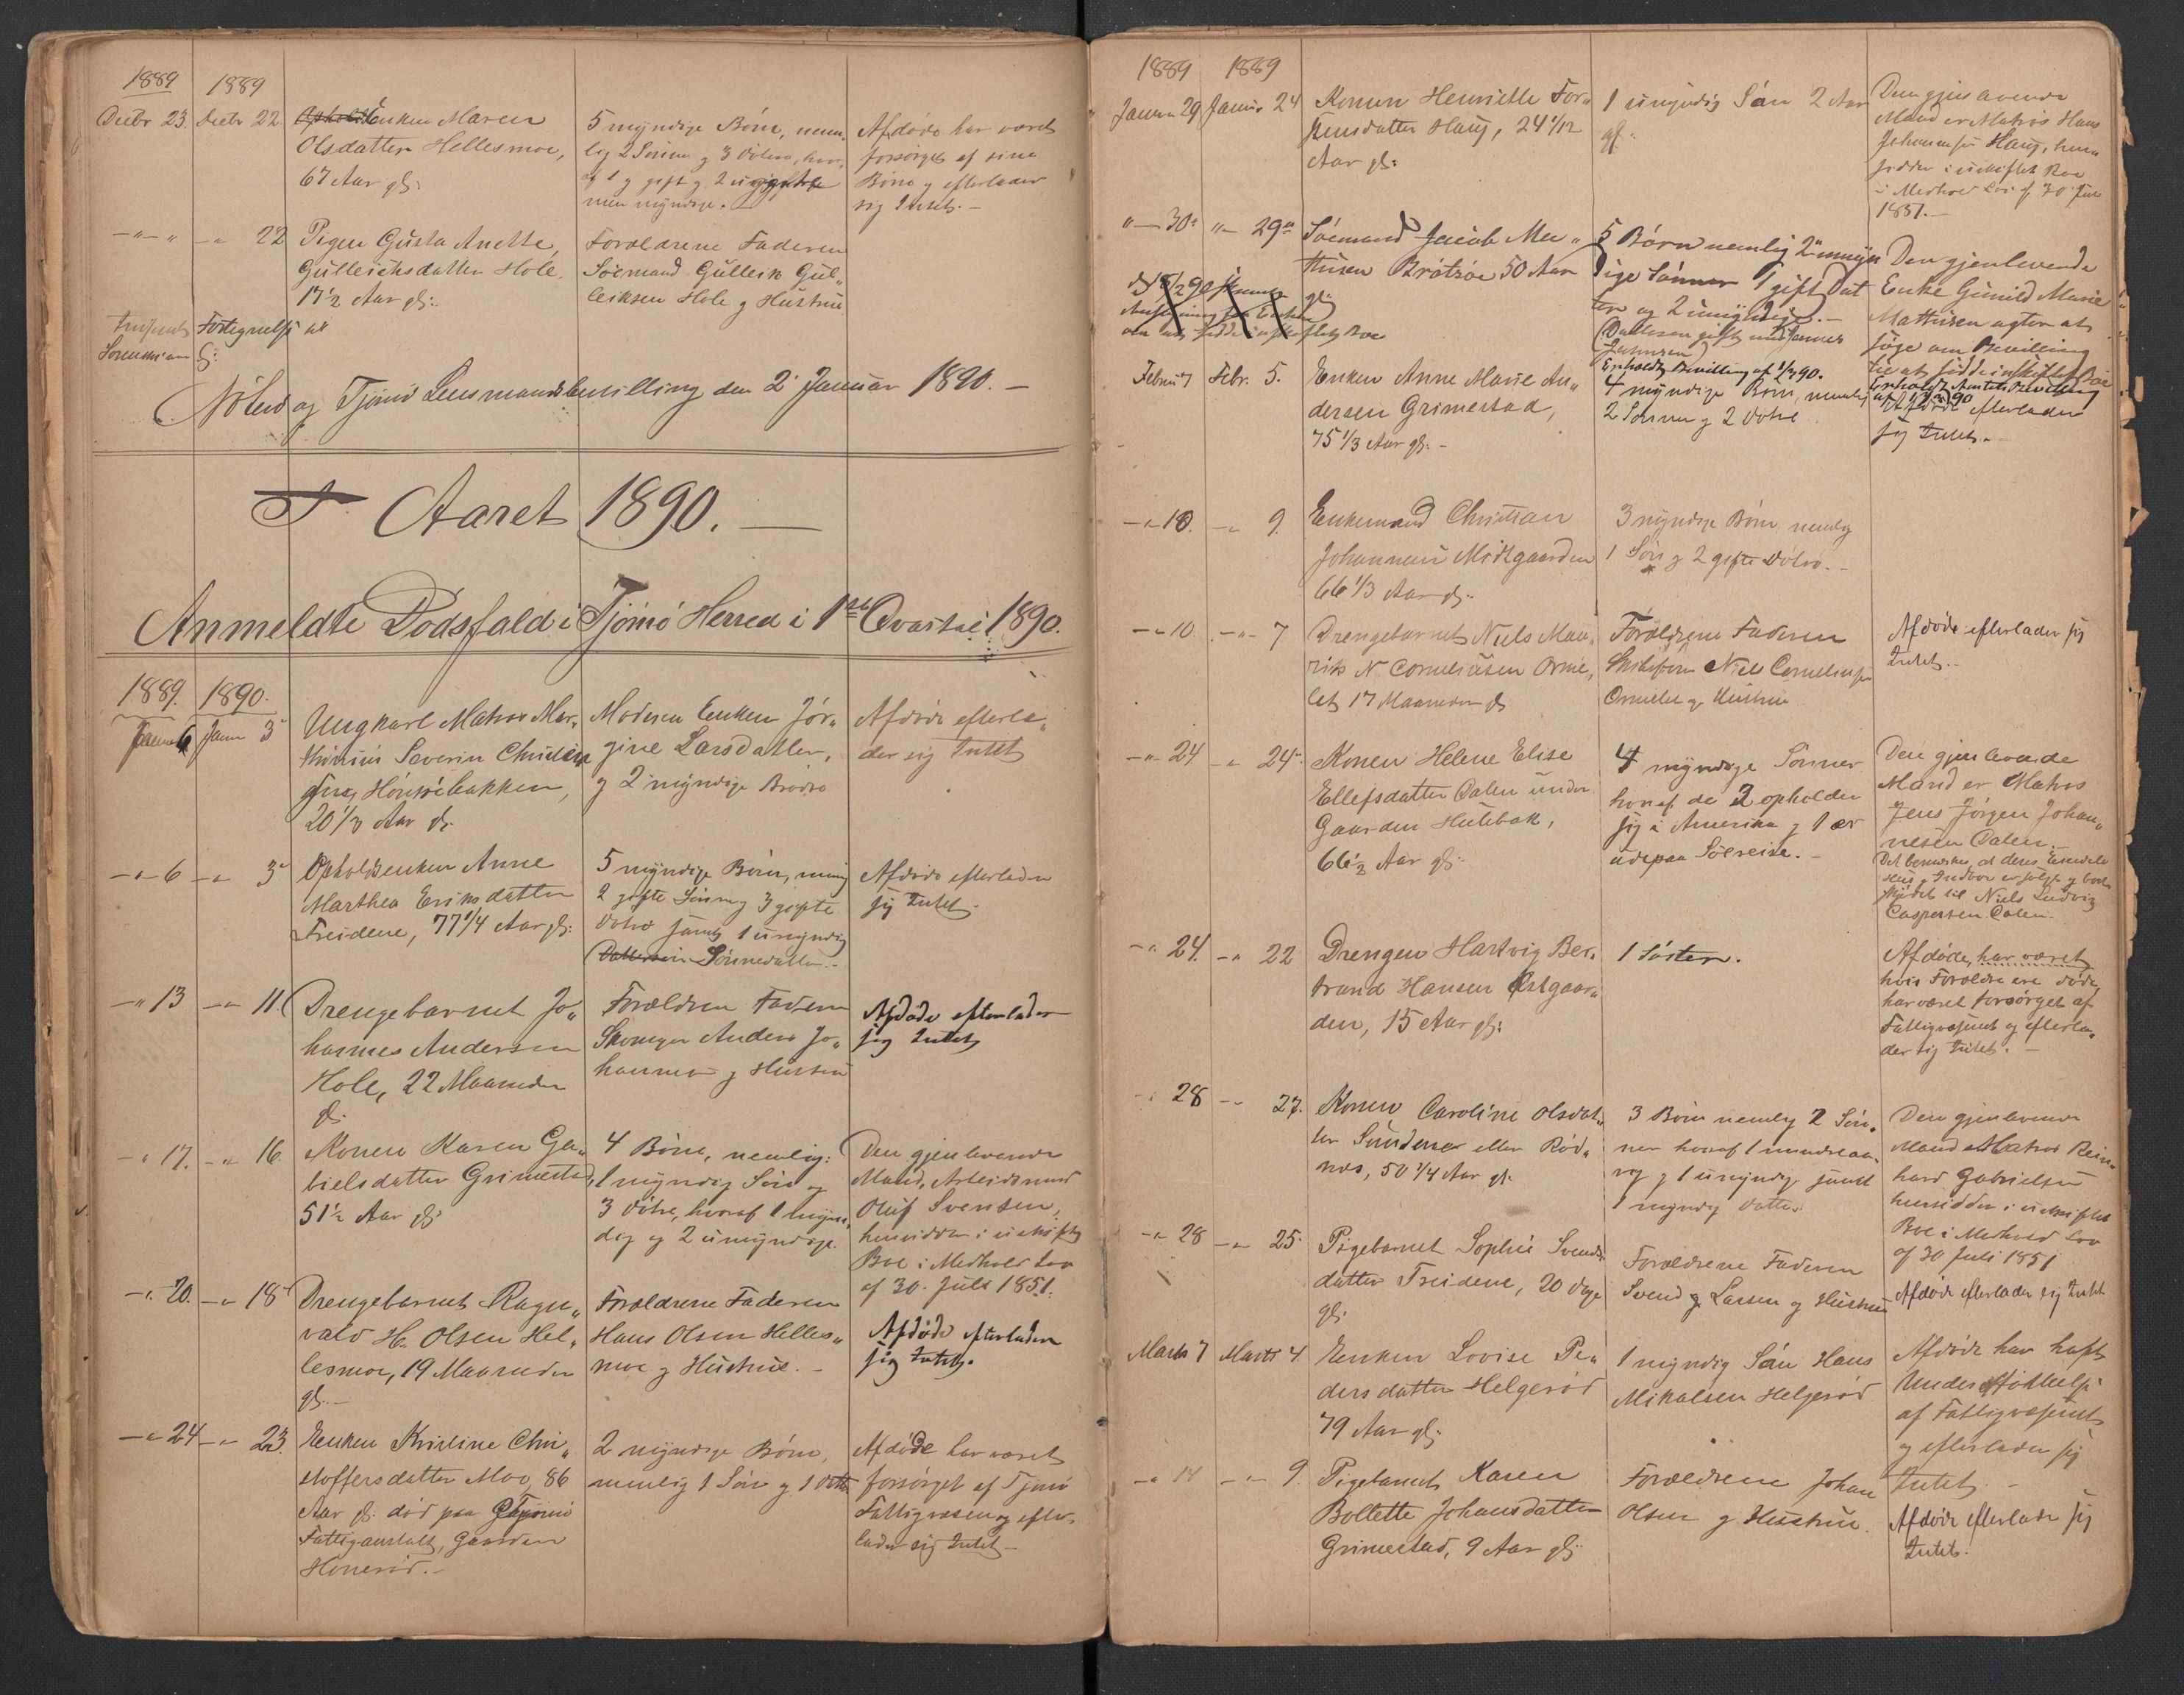 1889 1889
Decbr 23. Decbr 22. Enken Maren
Olsdatter Hellesmoe,
67 Aar gl:
5 myndige Børn, nem-
lig 2 Sønner g 3 Døtre, hvor-
af 1 g gift g 2 ugifte
men myndige.
Afdøde har været
forsørget af sine
Børn g efterlader
sig Intet. —
— " — " — " 22 Pigen Gusta Anette
Gulleichsdatter Hole,
17 1/2 Aar gl:
Forældrene Faderen
Sømand Gulleik Gul„
leiksen Hole g Hustru
Fortegnelse
Sorenskriveren
Nøterø og Tjømø Lensmandsbestilling den 2 Januar 1890. —
Aaret 1890. —
Anmeldte Dødsfald i Tjømø Herred i 1ste Qvartal 1890.
1889. 1890.
6 Janr 3 Ungkarl Matros Mar„
thinius Severin Christian
Hønsøbakken,
20 1/3 Aar gl.
Moderen Enken Jør„
gine Larsdatter,
g 2 myndige Brødre
Afdøde efterla„
der sig Intet
— " 6 — " 3 Opholdsenken Anne
Marthea Eriksdatter
Treidene, 77 1/4 Aar gl:
5 myndige Børn, nemlig
2 gifte Sønner g 3 gifte
Døtre samt 1 umyndig
Sønnedatter. —
Afdøde efterlader
sig Intet.
— " 13 — " 11. Drengebarnet Jo„
hannes Andersen
Hole, 22 Maaneder
gl.
Forældrene Faderen
Skomager Anders Jo„
hannes g Hustru
Afdøde efterlader
sig Intet
— " 17. — " 16. Konen Karen Ga„
bielsdatter Grimestad,
51 1/2 Aar gl:
4 Børn, nemlig:
1 myndig Søn og
3 Døtre, hvoraf 1 myn„
dig og 2 umyndige.
Den gjenlevende
Mand, Arbeidsmand
Oluf Svensen,
hensidder i uskiftet
Boe i Medhold Lov
af 30. Juli 1851.
— " 20. — " 18 Drengebarnet Ragn„
vald H. Olsen Hel„
lesmoe, 19 Maaneder
gl. —
Forældrene Faderen
Hans Olsen Helles„
moe g Hustrue. —
Afdøde efterlader
sig Intet.
— " 24 — " 23. Enken Kristine Chri„
stoffersdatter Moe, 86
Aar gl. død paa Tjømø
Fattiganstalt, Gaarden
Honerød. —
2 myndige Børn,
nemlig 1 Søn g 1 Datter
Afdøde har været
forsørget af Tjømø
Fattigvæsen og efter„
lader sig Intet —
1889 1889
Januar 29 Januar 24 Konen Henriette Tor„
Haug, 24 1/12
Aar gl:
1 umyndig Søn 2 Aar
gl:
Den gjenlevende
Mand er Matros Hans
Johansen Haug, hen„
sidder i uskiftet Boe
i Medhold Lov af 30 Juli
1851. —
" — 30 " — 29 Sømand Jacob Ma„
thisen Brøtsøe 50 Aar
gl:
5 Børn nemlig 2 umyn
dige Sønner 1 gift Dat
ter og 2 umyndige. —
(Datteren gift med
Johnsen)
Erholdt Bevilling af 90.
Den gjenlevende
Enke Gunild Marie
Mathisen agter at
søge om Bevilling
til at sidde i uskiftet Boe
Erholdt Amtets Bevilling
90
Februar 7 Febr. 5. Enken Anne Marie An„
dersen Grimestad,
75 1/3 Aar gl: —
4 myndige Børn, nemlig
2 Sønner g 2 Døtre
Afdøde efterlader
sig Intet. —
— " 10. — " 9. Enkemand Christian
Johannesen Midtgaarden
66 1/3 Aar gl.
3 myndige Børn nemlig
1 Søn g 2 gifte Døtre. —
— " 10. — " — 7 Drengebarnet Niels Mau„
rits N. Corneliusen Orme„
let 17 Maaneder gl
Forældrene Faderen
Niels Corneliusen
Ormelet g Hustrue
Afdøde efterlader sig
Intet. —
— " 24 — " 24 Konen Helene Elise
Ellefsdatter Dalen under
Gaarden Hulebak,
66 1/2 Aar gl:
4 myndige Sønner
hvoraf de 3 opholder
sig i Amerika g 1 er
udepaa Søreise. —
Den gjenlevende
Mand er Matros
Jens Jørgen Johan„
nesen Dalen. —
Det bemærkes, at deres Eiendele
Hus, Indboe er solgt g bort„
skjødet til Niels Ludvig
Caspersen Dalen.
— " 24. — " 22 Drengen Hartvig Ber„
trand Hansen Østgaar„
den, 15 Aar gl:
1 Søster.
Afdøde, har været
hvis Forældre ere døde,
har været forsørget af
Fattigvæsenet og efterla„
der sig Intet. —
— " 28 — " 27. Konen Caroline Olsdat„
ter Sundene eller Rød„
nes, 50 1/4 Aar gl.
3 Børn nemlig 2 Søn„
ner hvoraf 1 mindreaa„
rig g 1 umyndig samt
1 myndig Datter.
Den gjenlevende
Mand er Matros Rein„
hard Gabrielsen
hensidder i uskiftet
Boe i Medhold Lov
af 30 Juli 1851
— " 28 — " 25. Pigebarnet Sophie Svends„
datter Treidene, 20 Dage
gl:
Forældrene Faderen
Svend g Larsen g Hustrue
Afdøde efterlader sig Intet
Marts 7 Marts 4. Enken Lovise Pe„
dersdatter Helgerød
79 Aar gl:
1 myndig Søn Hans
Mikalsen Helgerød
Afdøde har havt
Understøttelse
af Fattigvæsenet
og efterlader sig
Intet —
— " 14 — " — 9. Pigebarnet Karen
Bollette Johansdatter
Grimestad, 9 Aar gl:
Forældrene Johan
Olsen g Hustrue.
Afdøde efterlader sig
Intet.